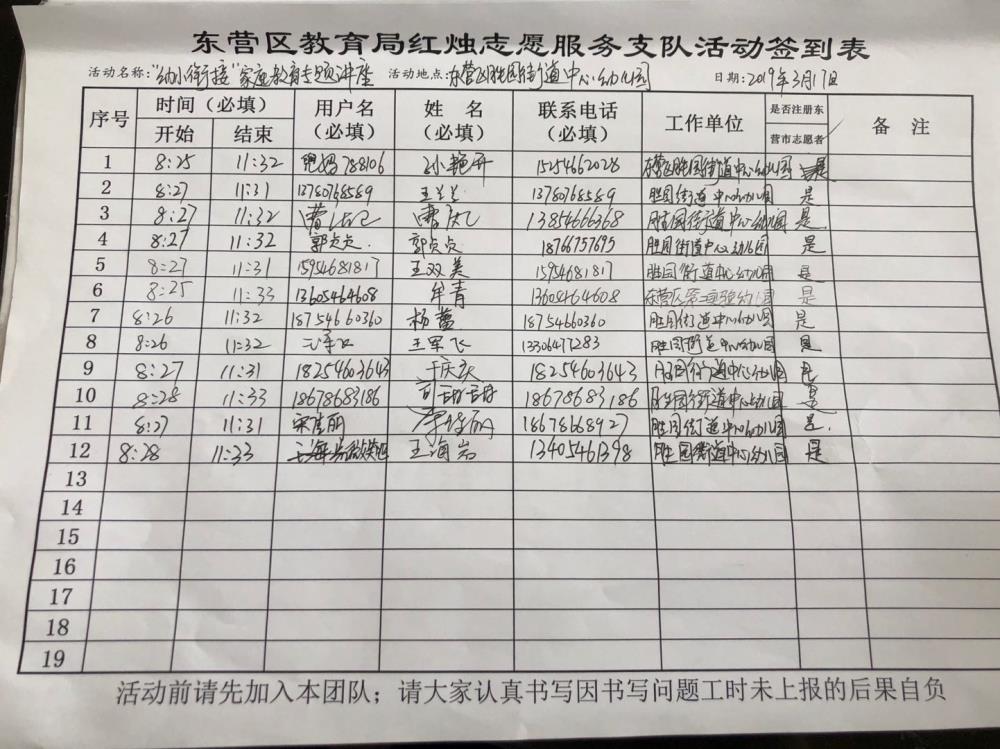 东营区教育局红烛志愿服务支队活动签到表
活动名称:"幼小衔接"家庭教育专题讲座 活动地点:东营区胜园街道中心幼儿园 日期:2019年3月17日
序号 时间（必填） 用户名（必填） 姓 名（必填） 联系电话（必填） 工作单位 是否注册东营市志愿者 备 注
开始 结束
1 8:25 11:32 788106 孙艳开 15254662028 东营区胜园街道中心幼儿园 是
2 8:27 11:31 13780768589 王兰兰 13780768589 胜园街道中心幼儿园 是
3 8:27 11:32 曹 13854666368 胜园街道中心幼儿园 是
4 8:27 11:32 郭贞贞 郭贞贞 18766757695 胜园街道中心幼儿园 是
5 8:27 11:31 15954681817 王双美 15954681817 胜园街道中心幼儿园 是
6 8:25 11:33 13605464608 牟青 13605464608 东营区第三实验幼儿园 是
7 8:26 11:32 18754660360 杨蕾 18754660360 胜园街道中心幼儿园 是
8 8:26 11:32 王军飞 13306477283 胜园街道中心幼儿园 是
9 8:27 11:31 18254603643 于庆庆 18254603643 胜园街道中心幼儿园 是
10 8:28 11:33 18678683186 18678683186 胜园街道中心幼儿园 是
11 8:27 11:31 宋佳丽 18678668927 胜园街道中心幼儿园 是
12 8:28 11:33 王海岩 13405461398 胜园街道中心幼儿园 是
13
14
15
16
17
18
19
活动前请先加入本团队；请大家认真书写因书写问题工时未上报的后果自负